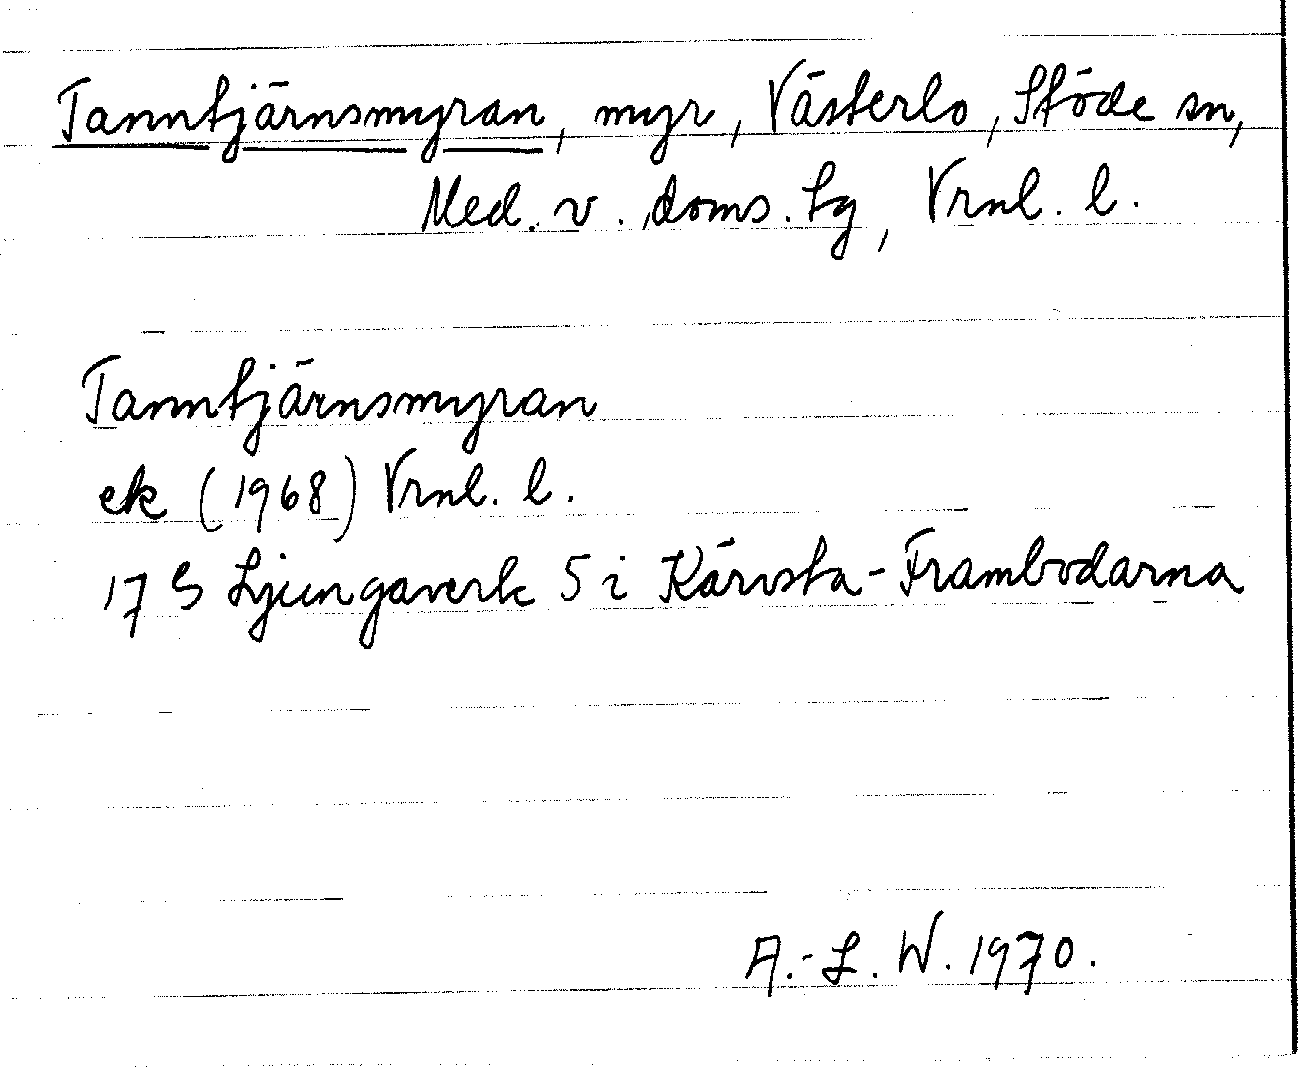 Tanntjärnsmyran, myr, Västerlo, Stöde sn,
Med. v. doms. tg, Vrnl. l.
Tanntjärnsmyran
ek (1968) Vrnl. l.
17 G Ljungaverk 5 i Kärvsta-Frambodarna
A.-L. W. 1970.